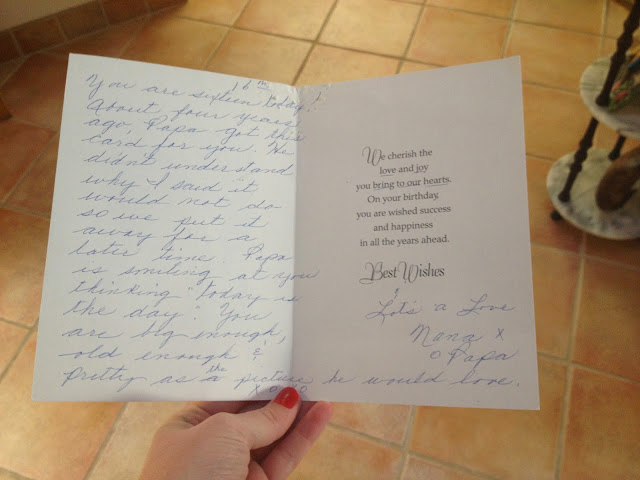 16th
You are sixteen today!
About four years
ago, Papa got this
card for you. He
didn't understand
why I said it
would not do
so we put it
away for a
later time. Papa
is smiling at you
thinking "today is
the day". You
are big enough,
old enough &
pretty as a the picture he would love.
x o x o
We cherish the
love and joy
you bring to our hearts.
On your birthday,
you are wished success
and happiness
in all the years ahead.
Best Wishes
&
Lots 'a Love
Nana x
o Papa